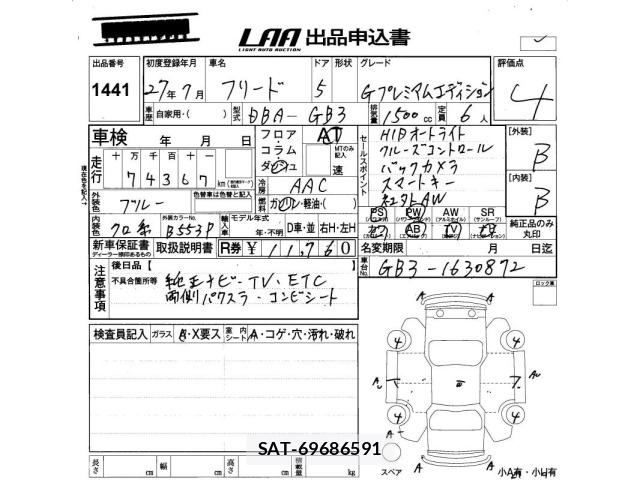 LAA 出品申込書
LIGHT AUTO AUCTION
出品番号 初度登録年月 車名 ドア 形状 グレード 評価点
1441 27年7月 フリード 5 Gプレミアムエディション 4
車歴 自家用・( ) 型式 DBA- GB3 排気量 1500cc 定員 6人
車検 年 月 日 フロア・コラム・ダッシュ AT MTのみ記入 速
走行 十万千百十一 74367km
現在色を記入↑
外装色 ブルー 色替車は色替と記入
冷房 AAC
燃料 ガソリン・軽油・( )
内装色 クロ系 外装カラーNo. B553P 輸入車 モデル年式 年・不明 D車・並 右H・左H
新車保証書 取扱説明書 R券 ¥ 11,760
ディーラー捺印あるもの
セールスポイント
HIDオートライト
クルーズコントロール
バックカメラ
スマートキー
純正AW
PS PW AW SR
(パワーウィンドウ) (アルミホイール) (サンルーフ)
カワ AB TV ナビ
純正品のみ丸印
[外装] B
[内装] B
名変期限 月 日迄
車台No. GB3-1630872
ロック裏
注意事項 後日品【 】
不具合箇所等 純正ナビ・TV・ETC
両側パワスラ・コンビシート
検査員記入 ガラス A・X要ス 室内シート A・コゲ・穴・汚れ・破れ
A A
4 4
A
4 4
A
A A
SAT-69686591
長さ cm 幅 cm 高さ cm 積載量 kg
スペア 小A有・小U有